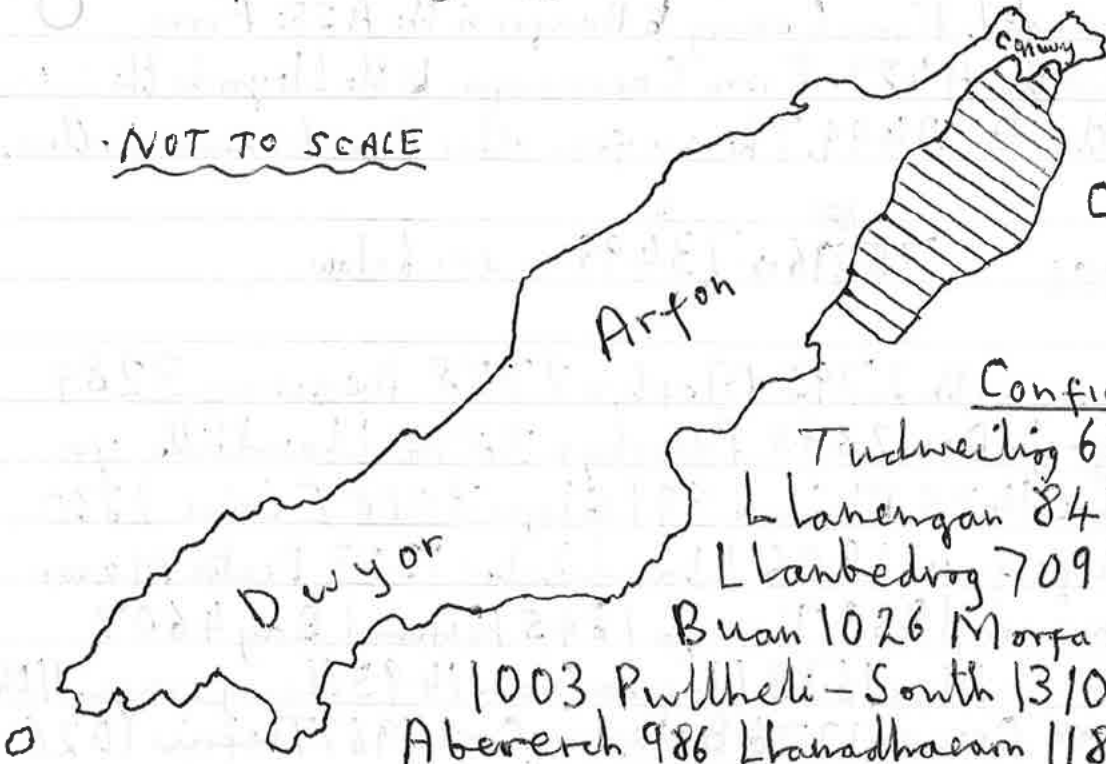 Conwy
NOT TO SCALE
C
Arfon
Confi
Tudweiliog 6
Llanengan 84
Dwyor
Llanbedrog 709
Buan 1026 Morfa
1003 Pwllheli - South 1310
Abererch 986 Llanadhaearn 118